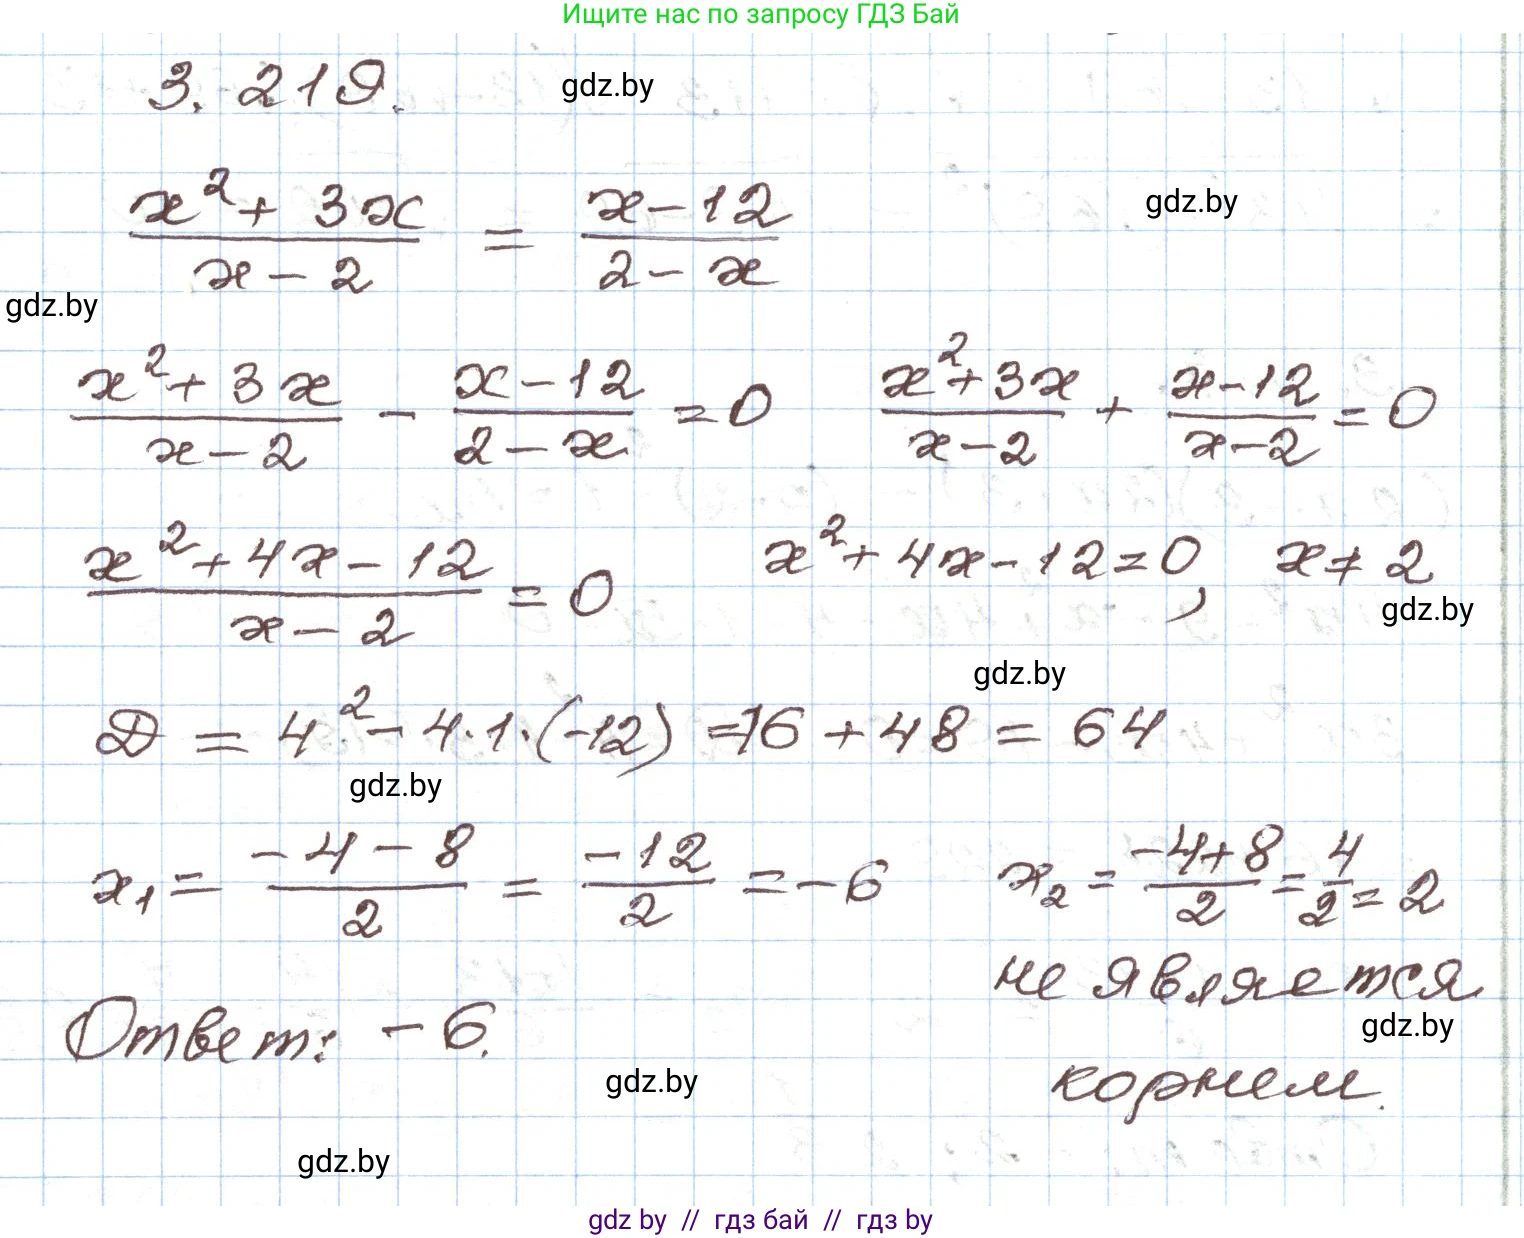 Ищите нас по запросу ГДЗ Бай
3.219.
gdz.by
x²+3x / x-2 = x-12 / 2-x
gdz.by
gdz.by
x²+3x / x-2 - x-12 / 2-x = 0   x²+3x / x-2 + x-12 / x-2 = 0
x²+4x-12 / x-2 = 0   x²+4x-12=0, x≠2
gdz.by
gdz.by
D = 4²-4·1·(-12) = 16+48 = 64
gdz.by
x₁ = -4-8 / 2 = -12 / 2 = -6   x₂ = -4+8 / 2 = 4 / 2 = 2
не является
Ответ: -6.
gdz.by
корнем.
gdz.by
gdz.by
gdz by // гдз бай // гдз by